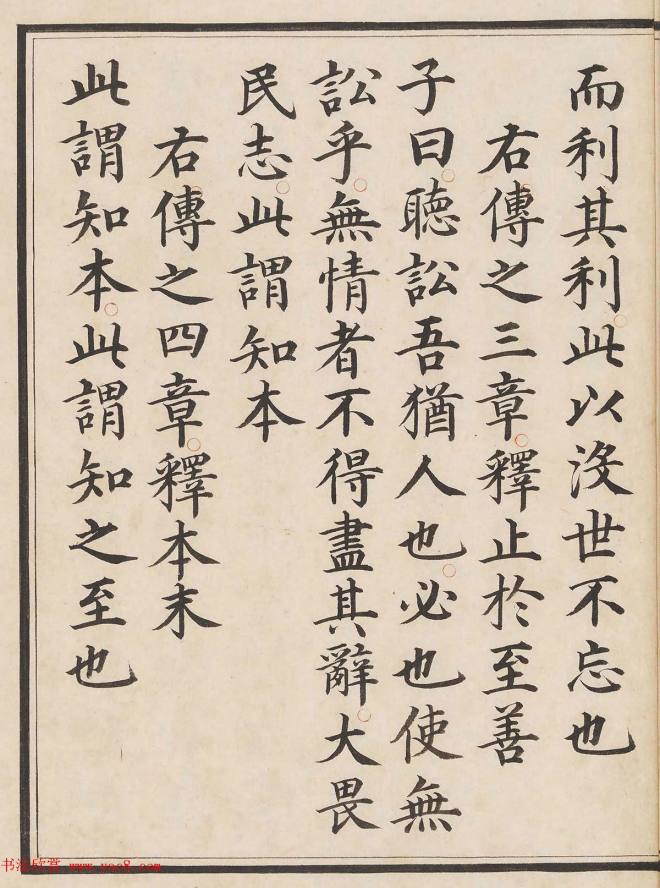 而利其利此以沒世不忘也
右傳之三章釋止於至善
子曰聽訟吾猶人也必也使無
訟乎無情者不得盡其辭大畏
民志此謂知本
右傳之四章釋本末
此謂知本此謂知之至也
书法欣赏 www.yac8.com